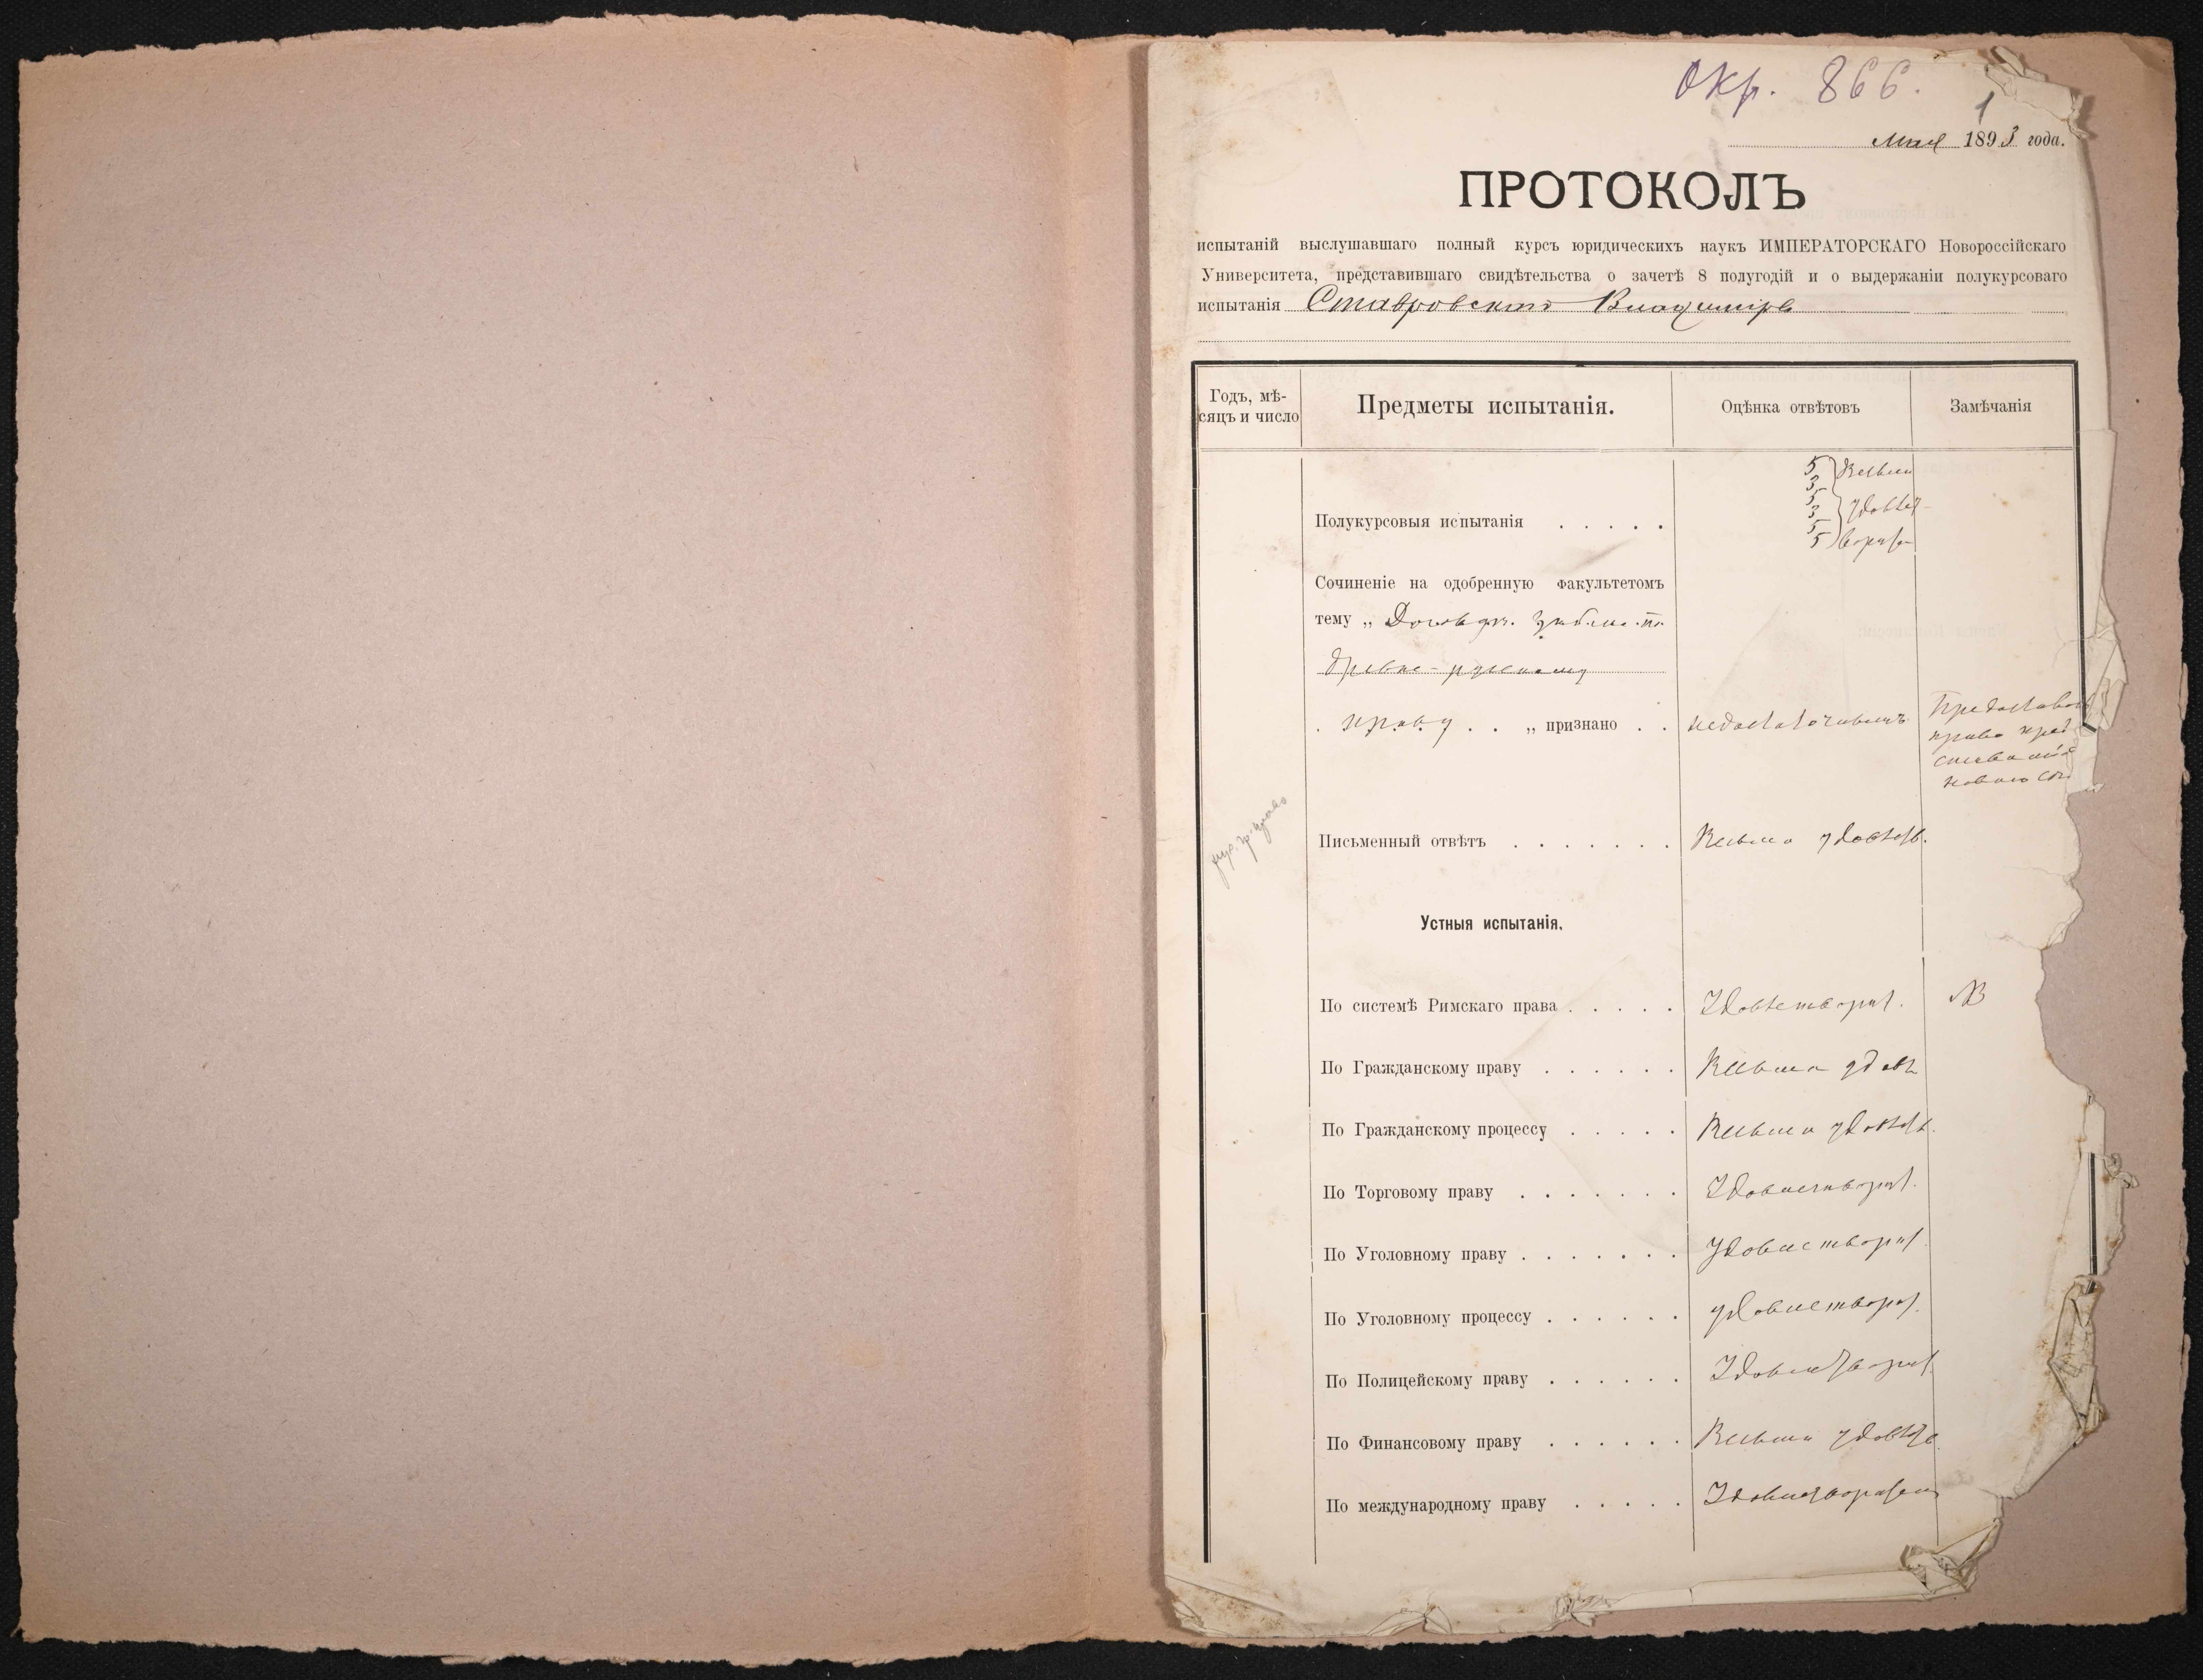 окр. 866.
1
Мая 1893 года.
ПРОТОКОЛЪ
испытаній выслушавшаго полный курсъ юридическихъ наукъ ИМПЕРАТОРСКАГО Новороссійскаго
Университета, представившаго свидѣтельства о зачетѣ 8 полугодій и о выдержаніи полукурсоваго
испытанія Ставровскаго Владиміра
Годъ, мѣ-
сяцъ и число
Предметы испытанія.
Оцѣнка отвѣтовъ
Замѣчанія
Полукурсовыя испытанія . . . . .
5
3
5
3
5
5
Весьма
удовлет-
ворит
Сочиненіе на одобренную факультетомъ
тему „ Договоръ займа по
древне-русскому
. праву . . „ признано . . недостаточнымъ
Предостав
право пред
новаго соч
Письменный отвѣтъ . . . . . . . Весьма удовлетв.
Устныя испытанія.
По системѣ Римскаго права . . . . . Удовлетворит. NB
По Гражданскому праву . . . . . . Весьма удовл
По Гражданскому процессу . . . . . Весьма удовлетв.
По Торговому праву . . . . . . . Удовлетворит.
По Уголовному праву . . . . . . . Удовлетворит.
По Уголовному процессу . . . . . . удовлетворит.
По Полицейскому праву . . . . . . Удовлетворит.
По Финансовому праву . . . . . . Весьма удовлетв.
По международному праву . . . . . Удовлетворительн